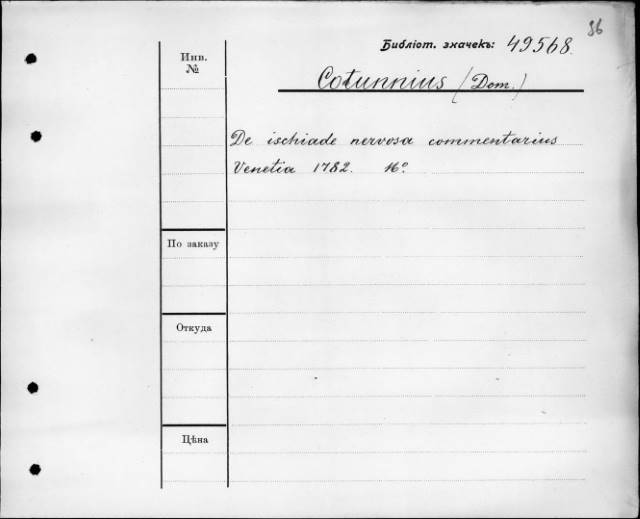 96
Библіот. значекъ: 49568.
Инв.
№
Cotunnius (Dom.)
De ischiade nervosa commentarius
Venetia 1782. 16°.
По заказу
Откуда
Цѣна